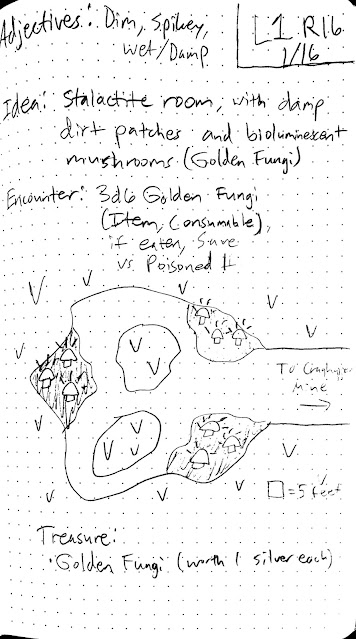 Adjectives: Dim, Spikey,
Wet/Damp
L1 R16
1/16
Idea: Stalactite room, with damp
dirt patches and bioluminescent
mushrooms (Golden Fungi)
Encounter: 3d6 Golden Fungi
(Item, Consumable),
if eaten, Save
vs Poisoned
To
Mine
= 5 feet
Treasure:
· Golden Fungi (worth 1 silver each)